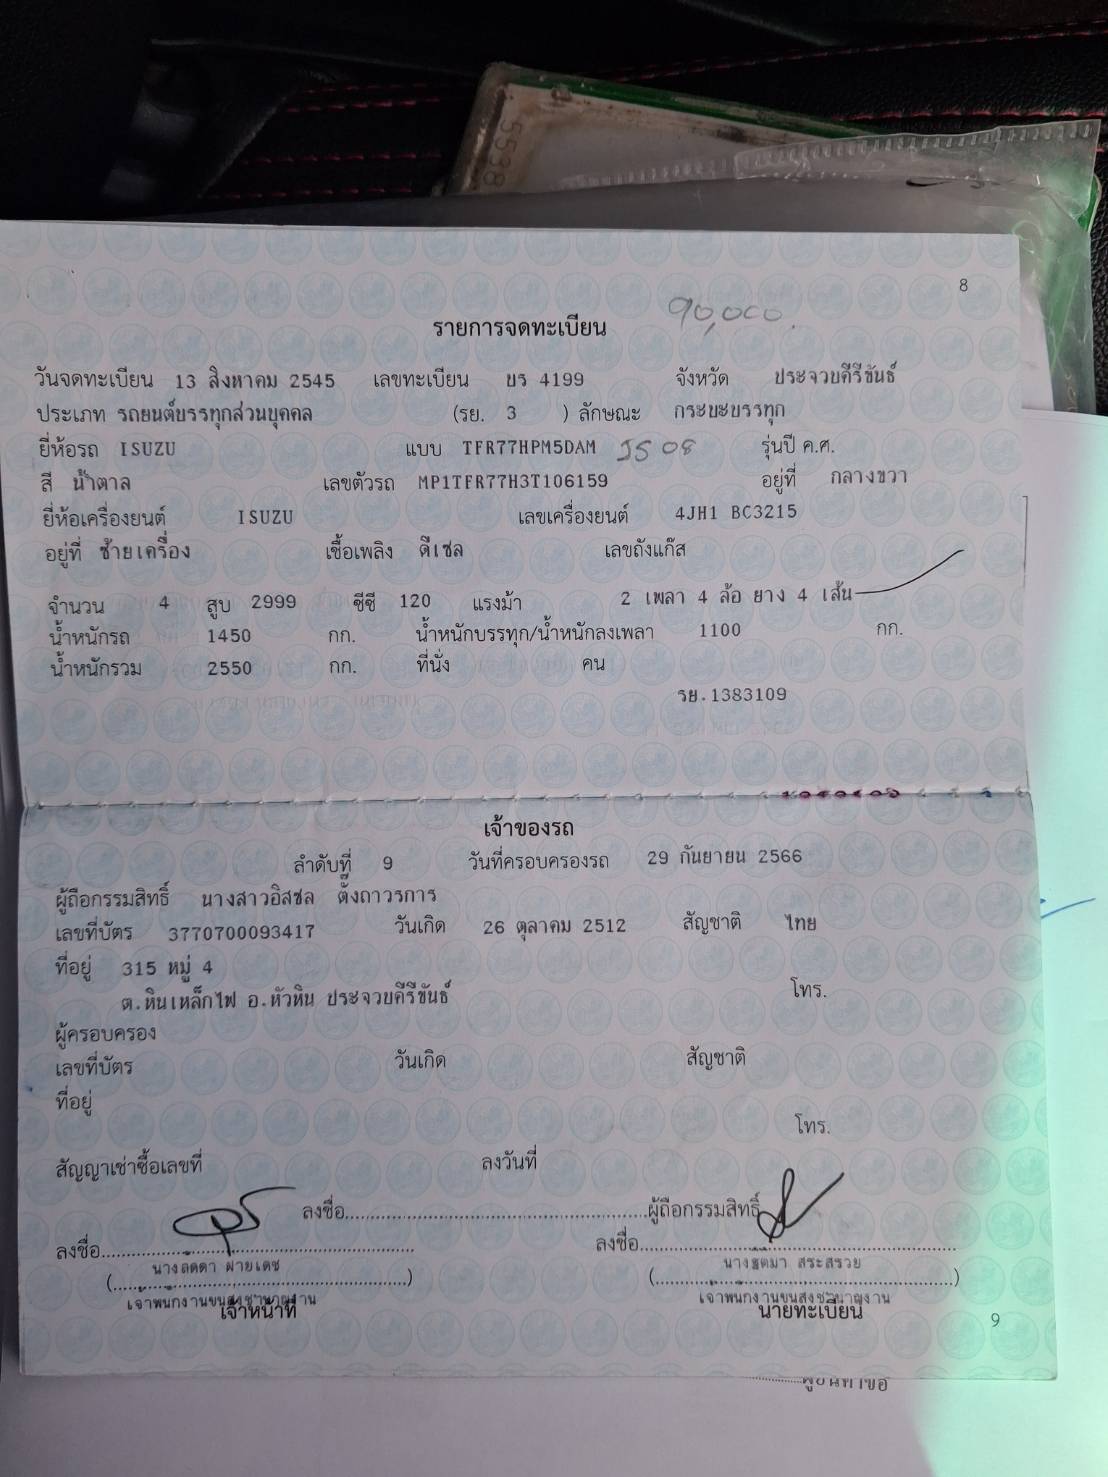 5538
8
90,000.
รายการจดทะเบียน
วันจดทะเบียน 13 สิงหาคม 2545 เลขทะเบียน บร 4199 จังหวัด ประจวบคีรีขันธ์
ประเภท รถยนต์บรรทุกส่วนบุคคล (รย. 3 ) ลักษณะ กระบะบรรทุก
ยี่ห้อรถ ISUZU แบบ TFR77HPM5DAM รุ่นปี ค.ศ.
สี น้ำตาล เลขตัวรถ MP1TFR77H3T106159 อยู่ที่ กลางขวา
ยี่ห้อเครื่องยนต์ ISUZU เลขเครื่องยนต์ 4JH1 BC3215
อยู่ที่ ซ้ายเครื่อง เชื้อเพลิง ดีเซล เลขถังแก๊ส
จำนวน 4 สูบ 2999 ซีซี 120 แรงม้า 2 เพลา 4 ล้อ ยาง 4 เส้น
น้ำหนักรถ 1450 กก. น้ำหนักบรรทุก/น้ำหนักลงเพลา 1100 กก.
น้ำหนักรวม 2550 กก. ที่นั่ง คน
รย.1383109
เจ้าของรถ
ลำดับที่ 9 วันที่ครอบครองรถ 29 กันยายน 2566
ผู้ถือกรรมสิทธิ์ นางสาวอิสชล ตั้งถาวรการ
เลขที่บัตร 3770700093417 วันเกิด 26 ตุลาคม 2512 สัญชาติ ไทย
ที่อยู่ 315 หมู่ 4
ต.หินเหล็กไฟ อ.หัวหิน ประจวบคีรีขันธ์ โทร.
ผู้ครอบครอง
เลขที่บัตร วันเกิด สัญชาติ
ที่อยู่
โทร.
สัญญาเช่าซื้อเลขที่ ลงวันที่
ลงชื่อ ผู้ถือกรรมสิทธิ์
ลงชื่อ ลงชื่อ
นางลดดา ฝ่ายเดช นางฐิตมา สระสรวย
เจ้าพนักงานขนส่งชำนาญงาน เจ้าพนักงานขนส่งชำนาญงาน
เจ้าหน้าที่ นายทะเบียน
9
ผู้ยื่นคำขอ